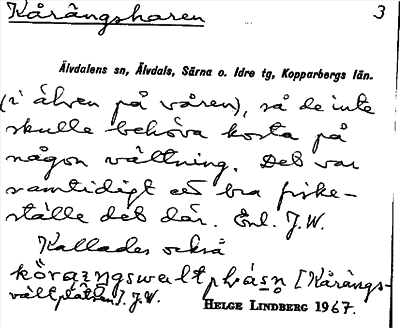 Kårängsharen 3
Älvdalens sn, Älvdals, Särna o. Idre tg, Kopparbergs län.
(i älven på våren), så de inte
skulle behöva kosta på
någon vältning. Det var
samtidigt ett bra fiske-
ställe det där. Enl. J.W.
Kallades också
[Kårängs-
vältplatsen]. J.W.
HELGE LINDBERG 1967.